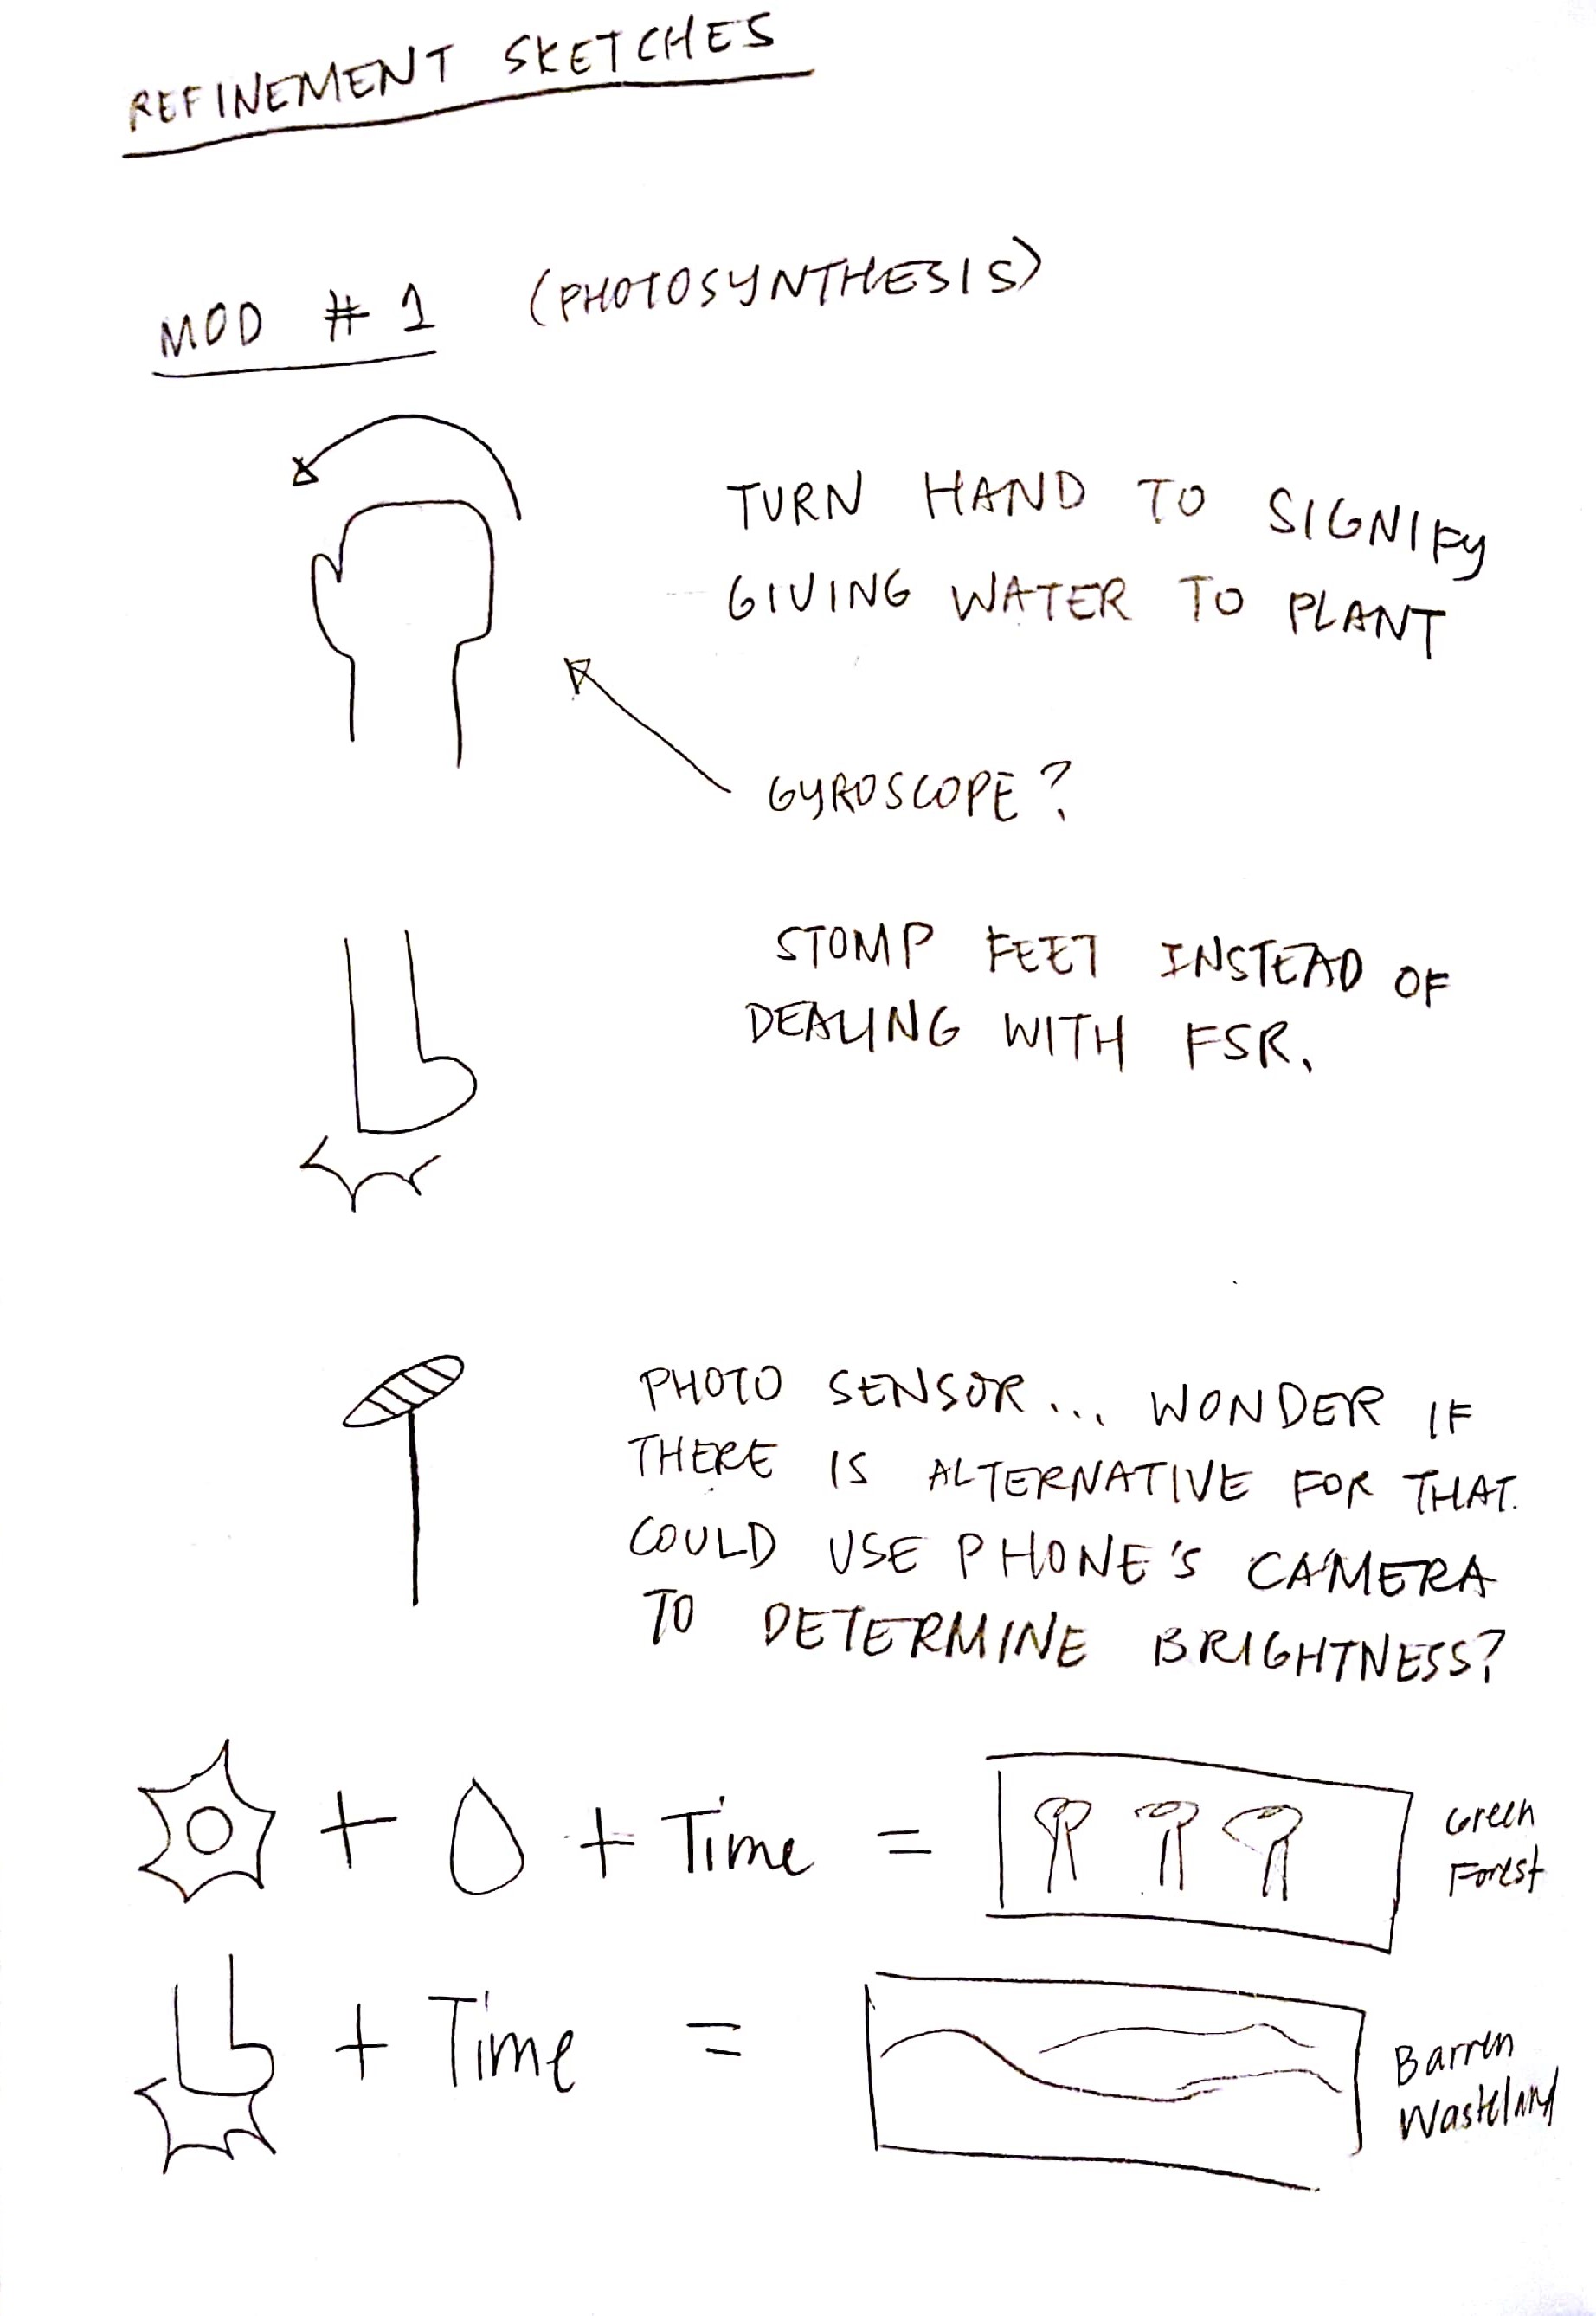 REFINEMENT SKETCHES
MOD # 1 (PHOTOSYNTHESIS)
TURN HAND TO SIGNIFY
GIVING WATER TO PLANT
GYROSCOPE?
STOMP FEET INSTEAD OF
DEALING WITH FSR.
PHOTO SENSOR... WONDER IF
THERE IS ALTERNATIVE FOR THAT.
COULD USE PHONE'S CAMERA
TO DETERMINE BRIGHTNESS?
+ + Time = Green
Forest
+ Time = Barren
Wasteland